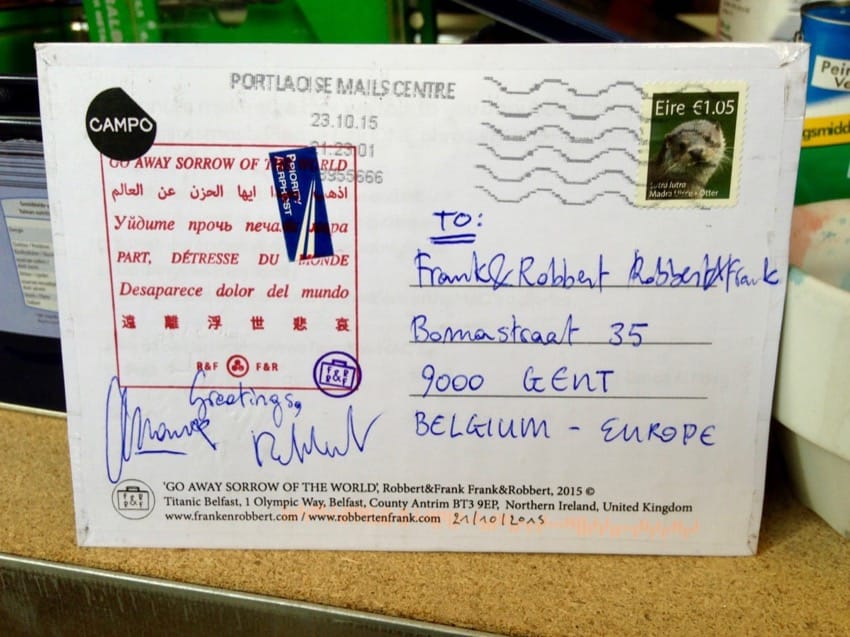 PORTLAOISE MAILS CENTRE
23.10.15
21:23:01
3955666
CAMPO
Eire €1.05
Lutra lutra
Madra Uisce • Otter
GO AWAY SORROW OF THE WORLD
PRIORITY
AERPHOST
اذهب ايها الحزن عن العالم
Уйдите прочь печа ра
PART, DÉTRESSE DU MONDE
Desaparece dolor del mundo
遠 離 浮 世 悲 哀
R&F F&R
F&R
R&F
Greetings,
TO:
Frank&Robbert Robbert&Frank
Bomastraat 35
9000 GENT
BELGIUM - EUROPE
F&R
R&F
'GO AWAY SORROW OF THE WORLD', Robbert&Frank Frank&Robbert, 2015 ©
Titanic Belfast, 1 Olympic Way, Belfast, County Antrim BT3 9EP, Northern Ireland, United Kingdom
www.frankenrobbert.com / www.robbertenfrank.com 21/10/2015